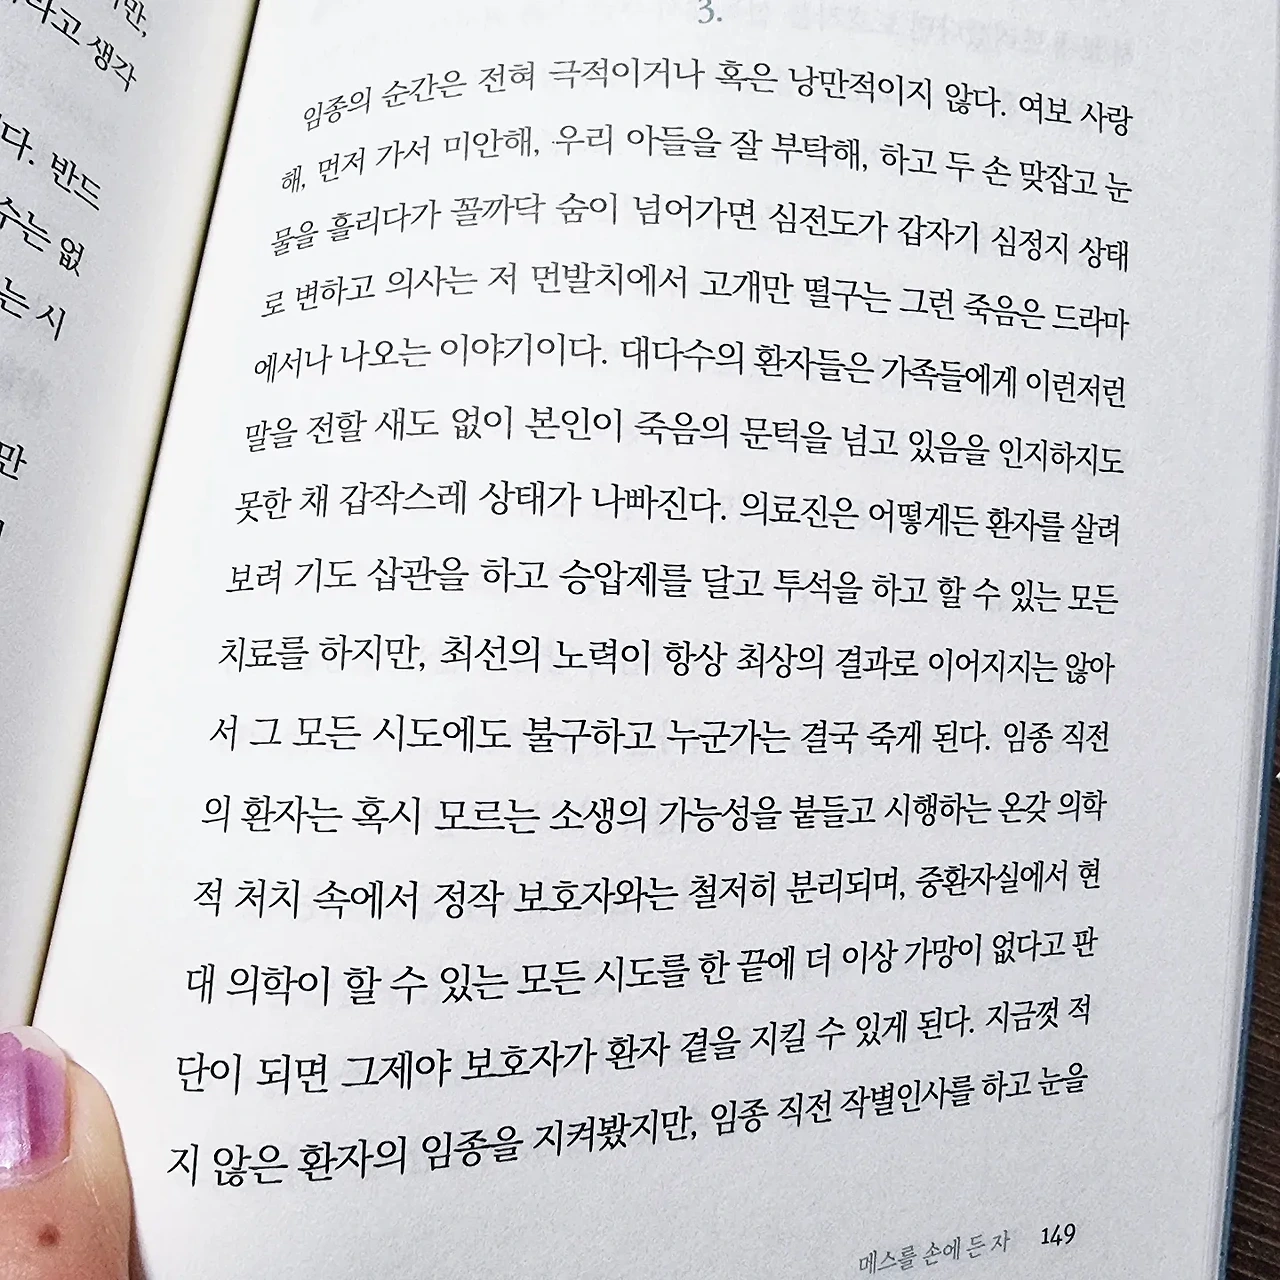 라고 생각
다. 반드
수는 없
는 시
만
3.
임종의 순간은 전혀 극적이거나 혹은 낭만적이지 않다. 여보 사랑
해, 먼저 가서 미안해, 우리 아들을 잘 부탁해, 하고 두 손 맞잡고 눈
물을 흘리다가 꼴까닥 숨이 넘어가면 심전도가 갑자기 심정지 상태
로 변하고 의사는 저 먼발치에서 고개만 떨구는 그런 죽음은 드라마
에서나 나오는 이야기이다. 대다수의 환자들은 가족들에게 이런저런
말을 전할 새도 없이 본인이 죽음의 문턱을 넘고 있음을 인지하지도
못한 채 갑작스레 상태가 나빠진다. 의료진은 어떻게든 환자를 살려
보려 기도 삽관을 하고 승압제를 달고 투석을 하고 할 수 있는 모든
치료를 하지만, 최선의 노력이 항상 최상의 결과로 이어지지는 않아
서 그 모든 시도에도 불구하고 누군가는 결국 죽게 된다. 임종 직전
의 환자는 혹시 모르는 소생의 가능성을 붙들고 시행하는 온갖 의학
적 처치 속에서 정작 보호자와는 철저히 분리되며, 중환자실에서 현
대 의학이 할 수 있는 모든 시도를 한 끝에 더 이상 가망이 없다고 판
단이 되면 그제야 보호자가 환자 곁을 지킬 수 있게 된다. 지금껏 적
지 않은 환자의 임종을 지켜봤지만, 임종 직전 작별인사를 하고 눈을
메스를 손에 든 자 149